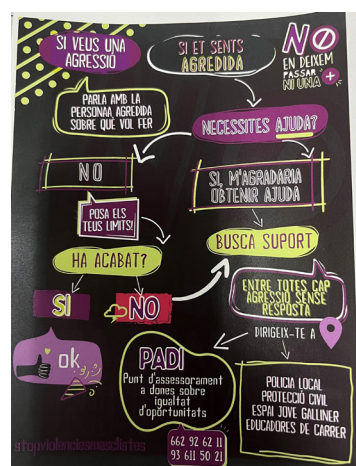 SI VEUS UNA
AGRESSIÓ
SI ET SENTS
AGREDIDA
NO
EN DEIXEM
PASSAR
NI UNA +
PARLA AMB LA
PERSONA AGREDIDA
SOBRE QUÈ VOL FER
NECESSITES AJUDA?
NO
SI, M'AGRADARIA
OBTENIR AJUDA
POSA ELS
TEUS LÍMITS!
HA ACABAT?
BUSCA SUPORT
SI
NO
ENTRE TOTES CAP
AGRESSIÓ SENSE
RESPOSTA
DIRIGEIX-TE A
ok
PADI
Punt d'assessorament
a dones sobre
igualtat
d'oportunitats
POLICIA LOCAL
PROTECCIÓ CIVIL
ESPAI JOVE GALLINER
EDUCADORES DE CARRER
662 92 62 11
93 611 50 21
stopviolenciesmasclistes